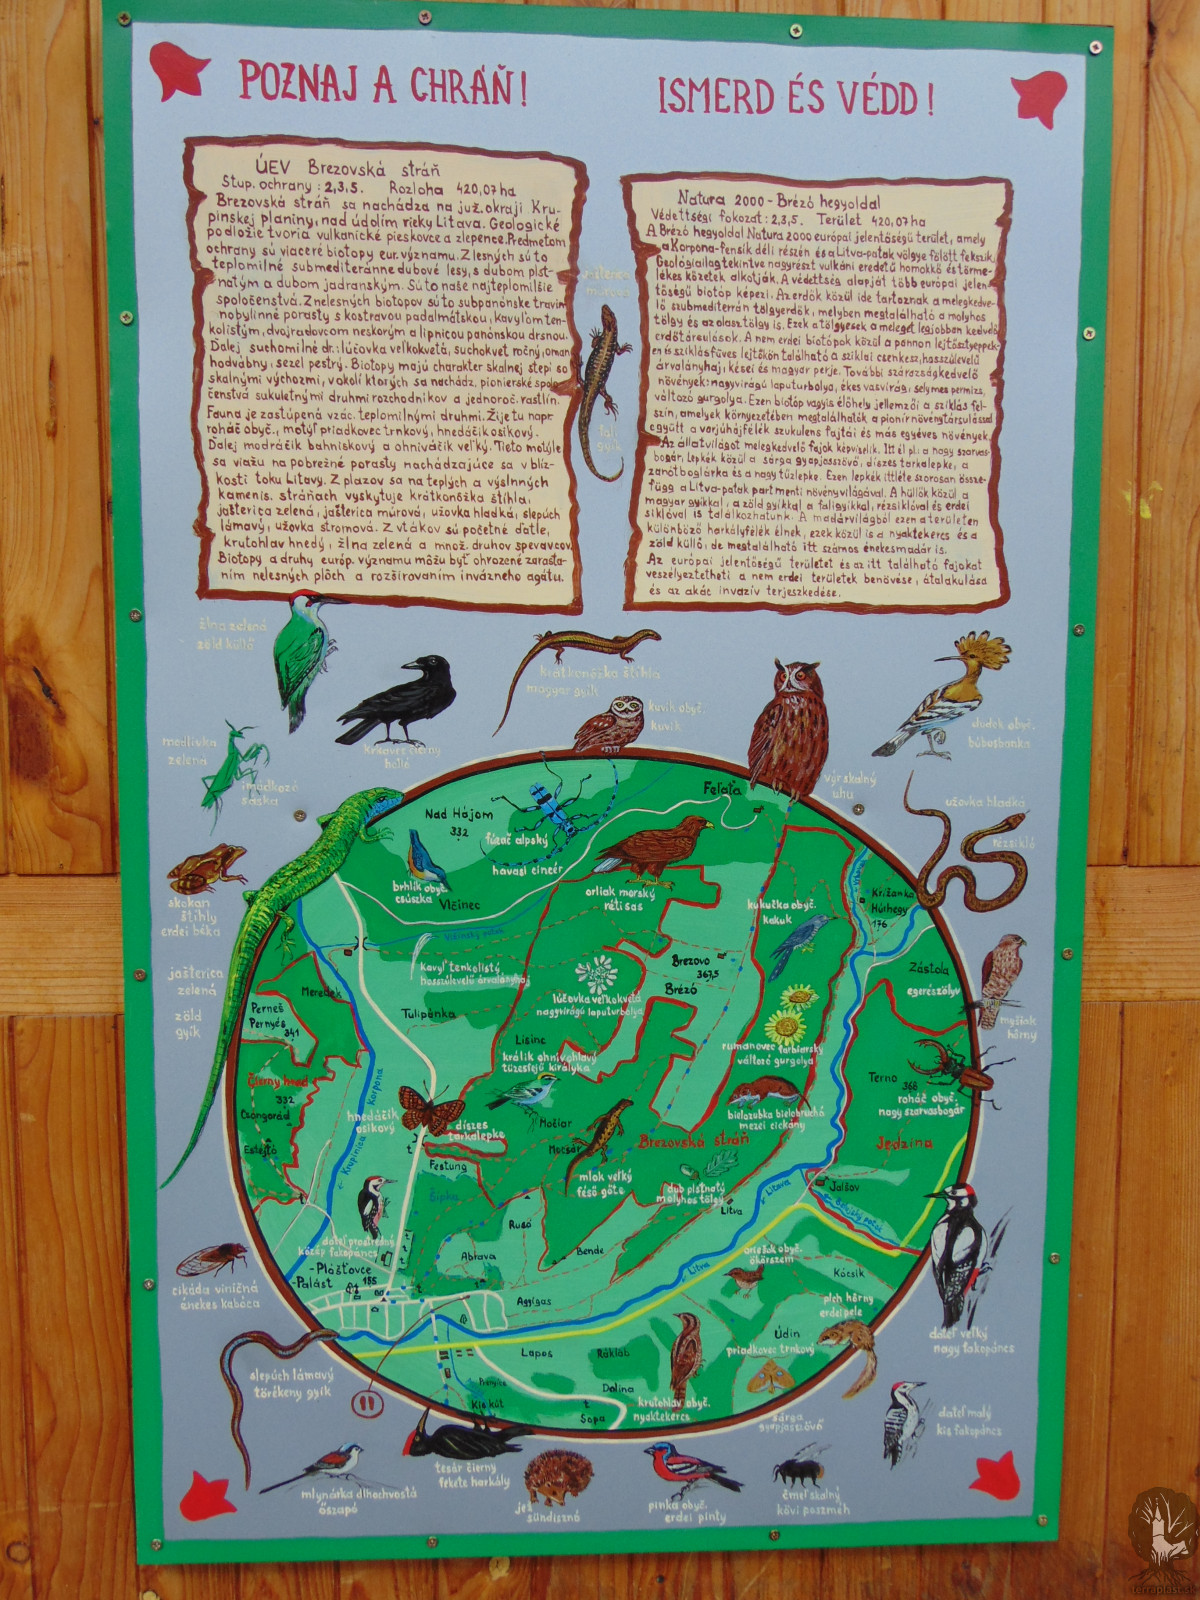 POZNAJ A CHRÁŇ!
ISMERD ÉS VÉDD!
ÚEV Brezovská stráň
Stup. ochrany: 2,3,5. Rozloha 420,07ha
Brezovská stráň sa nachádza na juž. okraji Kru-
pinskej planiny, nad údolím rieky Litava. Geologické
podložie tvoria vulkanické pieskovce a zlepence. Predmetom
ochrany sú viaceré biotopy eur. významu. Z lesných sú to
teplomilné submediteránne dubové lesy, s dubom plst-
natým a dubom jadranským. Sú to naše najteplomilšie
spoločenstvá. Z nelesných biotopov sú to subpanónske travin-
nobylinné porasty s kostravou padalmátskou, Kavyľom ten-
kolistým, dvojradovcom neskorým a lipnicou panónskou drsnou.
Ďalej suchomilné dr.: lúčovka veľkokvetá, suchokvet ročný, oman
hodvábny, sezel pestrý. Biotopy majú charakter skalnej stepi so
skalnými východzmi, v okolí ktorých sa nachádz. pionierské spolo-
čenstvá sukuletnými druhmi rozchodníkov a jednoroč. rastlín.
Fauna je zastúpená vzác. teplomilnými druhmi. Žije tu napr.
roháč obyč., motýľ priadkovec trnkový, hnedáčik osikový.
Ďalej modráčik bahniskový a ohniváčik veľký. Tieto motýle
sa viažu na pobrežné porasty nachádzajúce sa v blíz-
kosti toku Litavy. Z plazov sa na teplých a výslnných
kamenis. stráňach vyskytuje krátkonôžka štíhla,
jašterica zelená, jašterica múrová, užovka hladká, slepúch
lámavý, užovka stromová. Z vtákov sú početné ďatle,
krutohlav hnedý, žlna zelená a množ. druhov spevavcov.
Biotopy a druhy európ. významu môžu byť ohrozené zarasta-
ním nelesných plôch a rozširovaním invázneho agátu.
Natura 2000 - Bréző hegyoldal
Védettségi fokozat: 2,3,5. Terület 420,07 ha
A Bréző hegyoldal Natura 2000 európai jelentőségű terület, amely
a Korpona-fensík déli részén és a Litva-patak völgye fölött fekszik.
Geológiailag tekintve nagyrészt vulkáni eredetű homokkő és törme-
lékes kőzetek alkotják. A védettség alapját több európai jelen-
tőségű biotóp képezi. Az erdők közül ide tartoznak a melegkedve-
lő szubmediterrán tölgyerdők, melyben megtalálható a molyhos
tölgy és az olasz tölgy is. Ezek a tölgyesek a meleget legjobban kedvelő
erdőtársulások. A nem erdei biotópok közül a pannon lejtősztyeppek-
en és sziklásfüves lejtőkön található a sziklai csenkesz, hosszúlevelű
árvalányhaj, kései és magyar perje. További szárazságkedvelő
növények: nagyvirágú laputurbolya, ékes vasvirág, selymes peremizs,
változó gurgolya. Ezen biotóp vagyis élőhely jellemzői a sziklás fel-
szín, amelyek környezetében megtalálhatók a pionír növénytársulással
együtt a varjúhájfélék szukulens fajtái és más egyéves növények.
Az állatvilágot melegkedvelő fajok képviselik. Itt él pl: a nagy szarvas-
bogár. Lepkék közül a sárga gyapjasszövő, díszes tarkalepke, a
zanótboglárka és a nagy tűzlepke. Ezen lepkék ittléte szorosan össze-
függ a Litva-patak part menti növényvilágával. A hüllők közül a
magyar gyíkkal, a zöld gyíkkal a faligyíkkal, rézsiklóval és erdei
siklóval is találkozhatunk. A madárvilágból ezen a területen
különböző harkályfélék élnek, ezek közül is a nyaktekercs és a
zöld küllő, de megtalálható itt számos énekesmadár is.
Az európai jelentőségű területet és az itt található fajokat
veszélyeztetheti a nem erdei területek benövése, átalakulása
és az akác invazív terjeszkedése.
jašterica
múrová
fali
gyík
žlna zelená
zöld küllő
krátkonôžka štíhla
magyar gyík
kuvik obyč.
kuvik
dudek obyč.
búbosbanka
modlivka
zelená
imádkozó
sáska
holló
výr skalný
uhu
užovka hladká
rézsikló
skokan
štíhly
erdei béka
jašterica
zelená
zöld
gyík
Nad Hájom
332
fúzač alpský
havasi cincér
Feľata
brhlík obyč.
csúszka
Vlčinec
orliak morský
réti sas
kukučka obyč.
kakuk
Križanka
Húthegy
176
Vlčinský potok
Kavyľ tenkolistý
hosszúlevelű árvalányhaj
Brezovo
367,5
Bréző
Zástola
egerészölyv
myšiak
hôrny
Meredek
Perneš
Pernyés
341
Tulipánka
lúčovka veľkokvetá
nagyvirágú laputurbolya
Lisinc
králik ohnivohlavý
tüzesfejű királyka
rumanovec farbiarsky
változó gurgolya
Čierny hrad
332
Csongorád
Esteftő
Krupinica
Korpona
hnedáčik
osikový
díszes
tarkalepke
Močiar
Mocsár
bielozubka bielobruchá
mezei cickány
Terno 368
roháč obyč.
nagy szarvasbogár
Brezovská stráň
Jedzina
Festung
Šípka
mlok veľký
fésű gőte
dub plstnatý
molyhos tölgy
Litva
Litava
Jalšov
ďateľ prostredný
közép fakopáncs
Rusó
Abrava
Bende
Plášťovce
Palást
155
Aggigas
Litva
oriešok obyč.
ökörszem
Kőcsik
plch hôrny
erdei pele
cikáda viničná
énekes kabóca
Lapos
Rakláb
Údin
priadkovec trnkový
ďateľ veľký
nagy fakopáncs
slepúch lámavý
törékeny gyík
Kiskút
Dolina
Sopa
krutohlav obyč.
nyaktekercs
sárga
gyapjasszövő
ďateľ malý
kis fakopáncs
mlynárka dlhochvostá
őszapó
tesár čierny
fekete harkály
jež
sündisznó
pinka obyč.
erdei pinty
čmeľ skalný
kövi poszméh
terraplast.sk